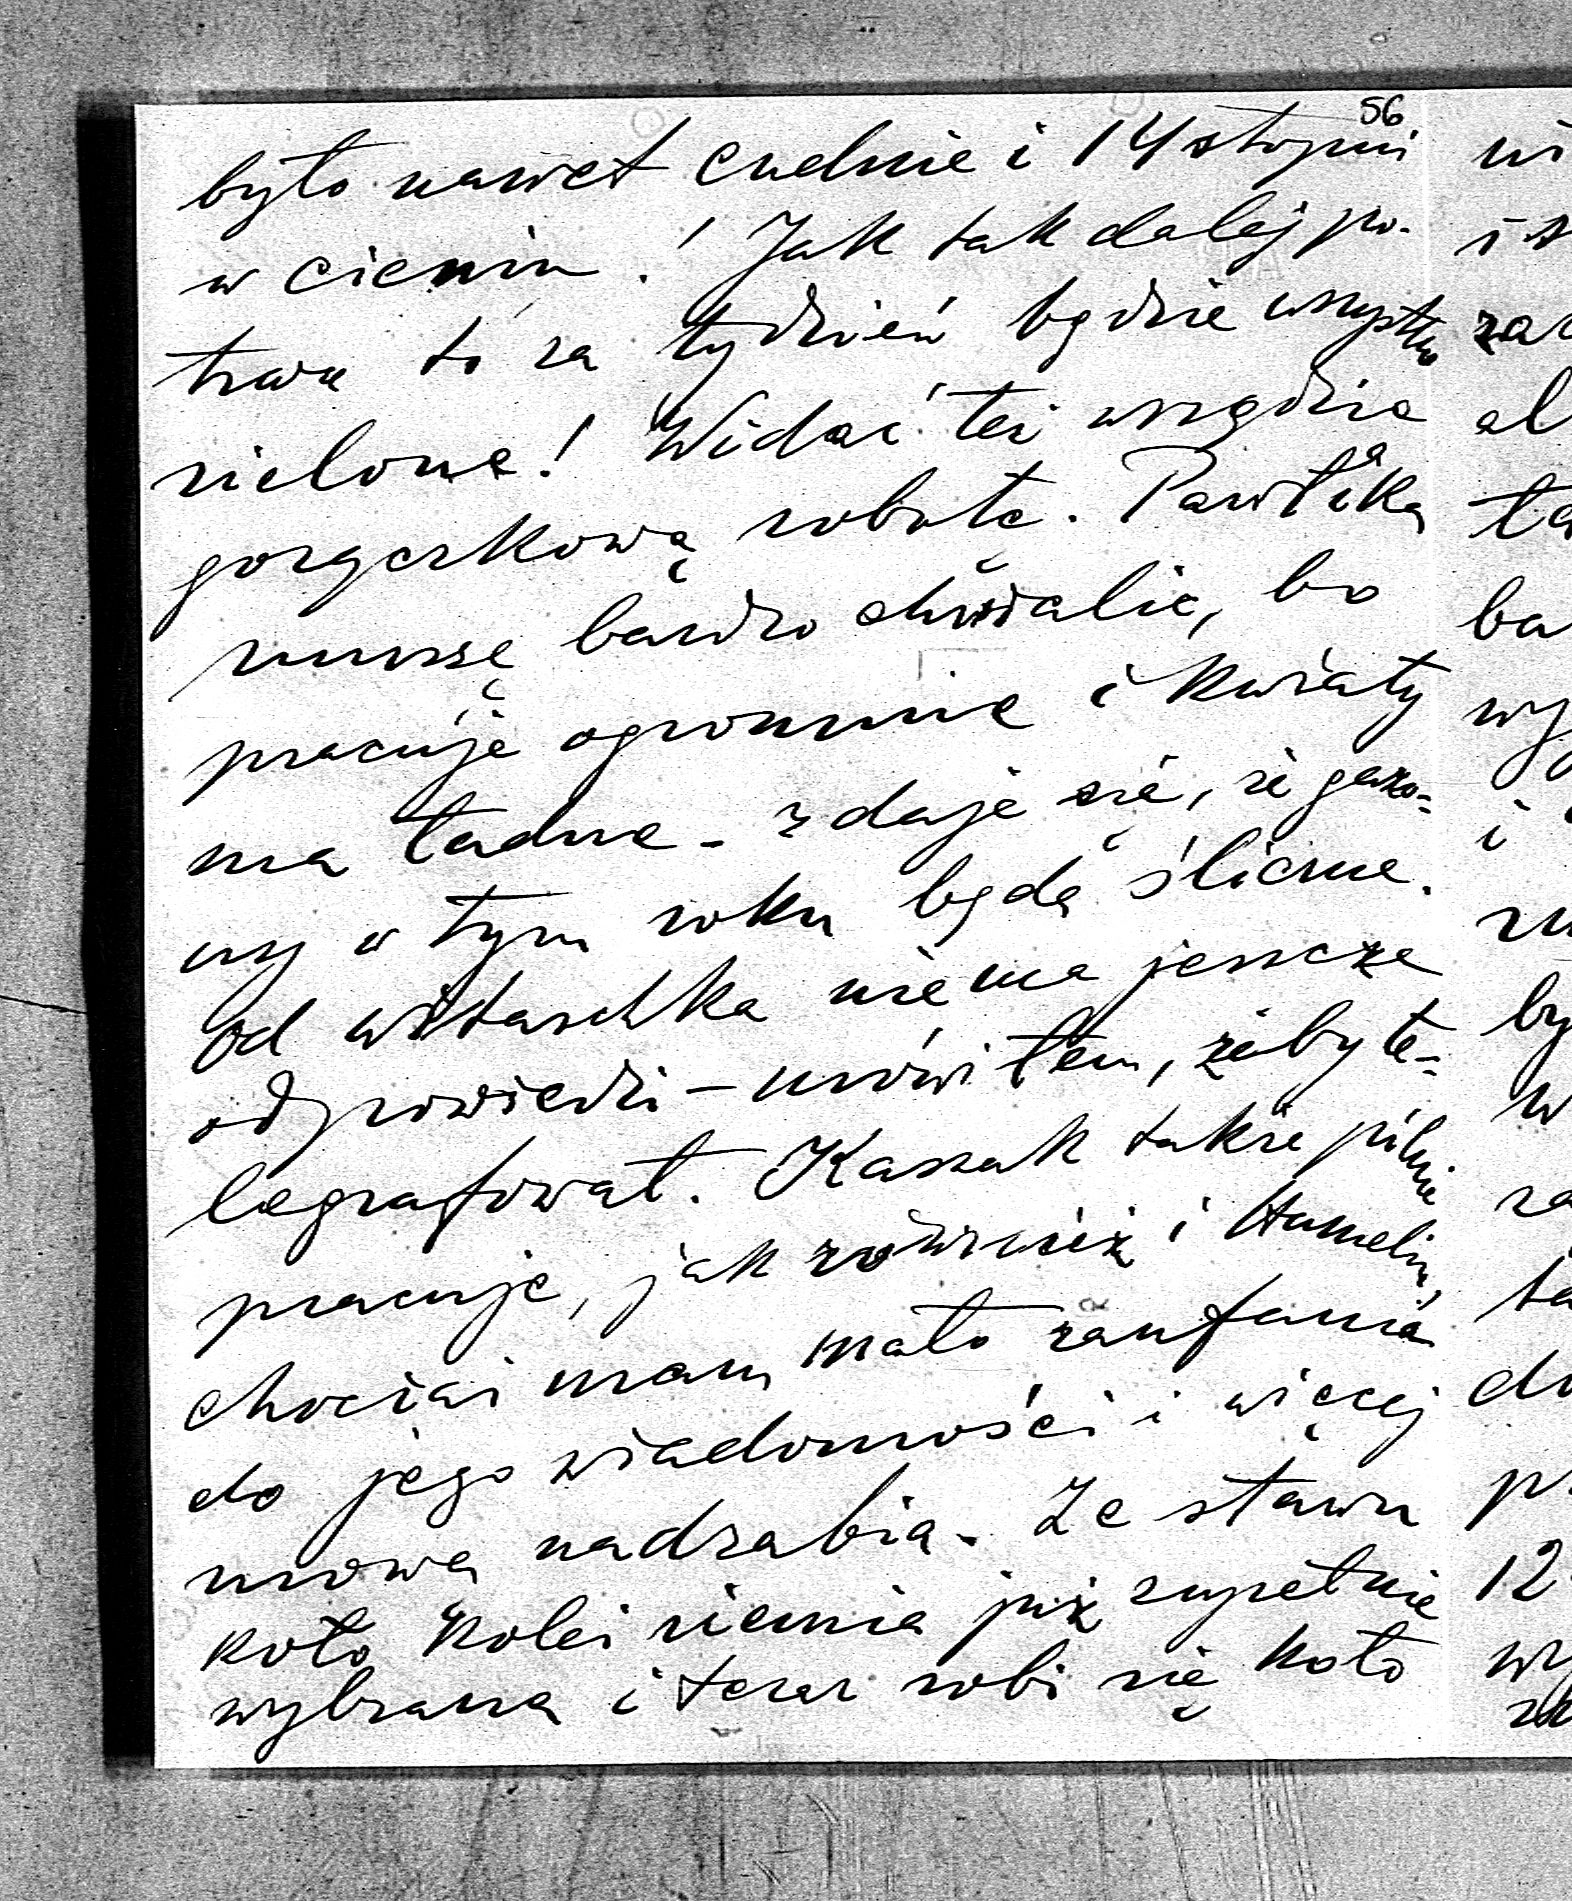 56
było nawet cudnie i 14 stopni
w cieniu! Jak tak dalej po-
trwa to za tydzień będzie wszystko
zielone! Widać też wszędzie
gorączkową robotę. Pawlaka
muszę bardzo chwalić, bo
pracuje ogromnie i kwiaty
ma ładne - zdaje się, że gazo-
ny w tym roku będą śliczne.
Od Witaschka nie ma jeszcze
odpowiedzi - mówiłem, żeby te-
legrafował. Kaszak także pilnie
pracuje, jak również i Hamelin,
chociaż mam mało zaufania
do jego wiadomości i więcej
mową nadrabia. Ze stawu
koło kolei ziemia już zupełnie
wybrana i teraz robi się koło